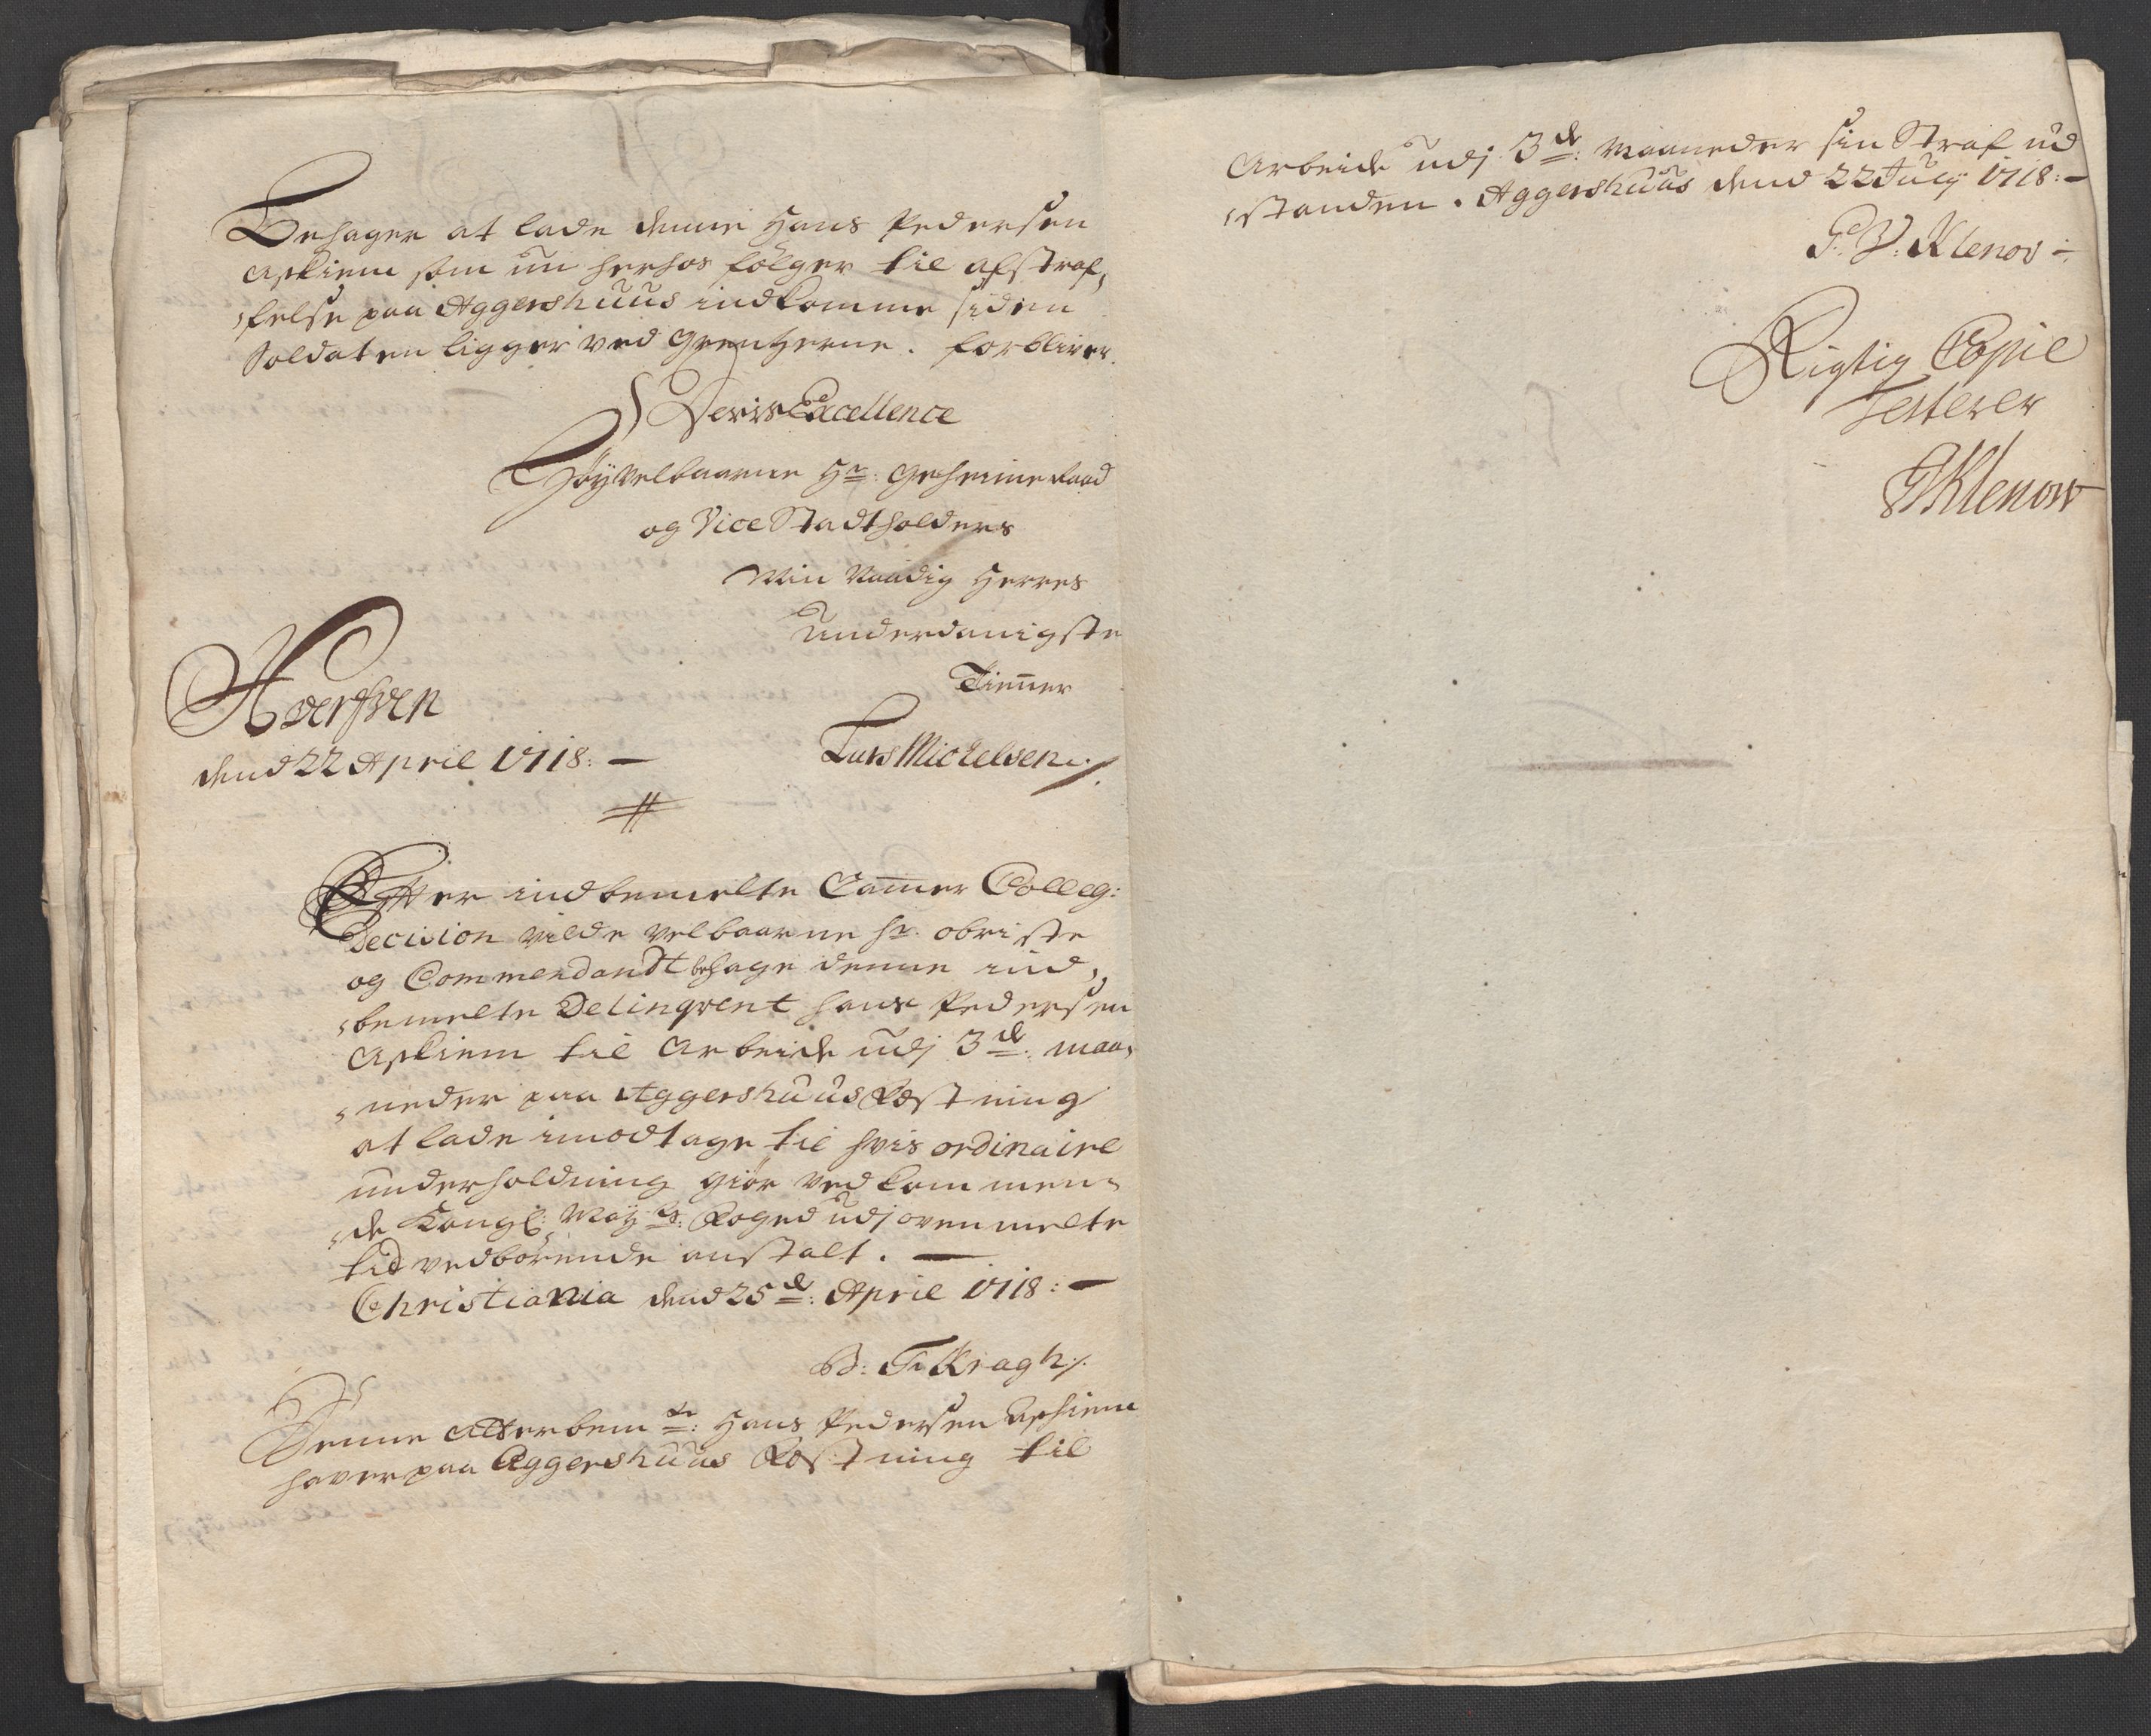 Behager at lade denne Hans Pedersen
Askiem som nu herhos følger til afstraf,
,felse paa Aggershuus indkomme siden
Soldaten ligger ved Grentzerne. forbliver
Deris Excellence
Høyvelbaarne Hr: Geheime Raad
og Vice Stadtholders
Min Naadig Herres
Underdanigste
Tienner
Lars Michelsen ./.
dend 22 April 1718: —
Efter indbemelte Cammer Colleg:
Decision vilde Velbaarne Hr. Obriste
og Commendandt behage denne ind,
,bemelte Delinqvent Hans Pedersen
Askiem til Arbeide udj 3de: maa,
,neder paa Aggershuus Festning
at lade imodtage til hvis ordinaire
underholdning giør vedkommen,
,de Kongl: May ts: Foged udj ovenmelte
tid vedbørende anstalt. —
Christiania dend 25de: April 1718: —
B: F Kragh ./.
Denne Atterbem te: Hans Pedersen Askiem
haver paa Aggershuus Festning til
Arbeide udj 3de: Maaneder sin Straf ud
,standen. Aggershuus dend 22 July 1718: —
P. V: Klenov ÷
Rigtig Copie
Testerer
PVKlenow